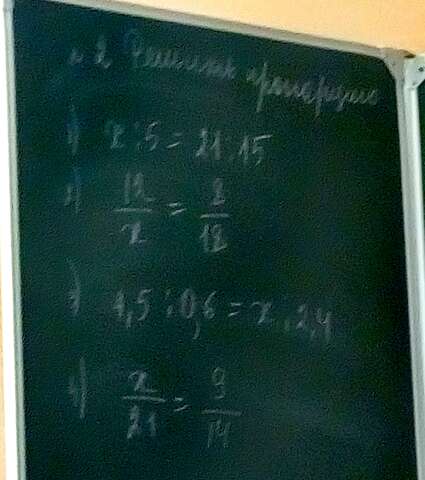 №2 Решить пропорцию
1) x : 5 = 21 : 15
2) 12/x = 8/12
3) 4,5 : 0,6 = x : 2,4
4) x/21 = 9/14